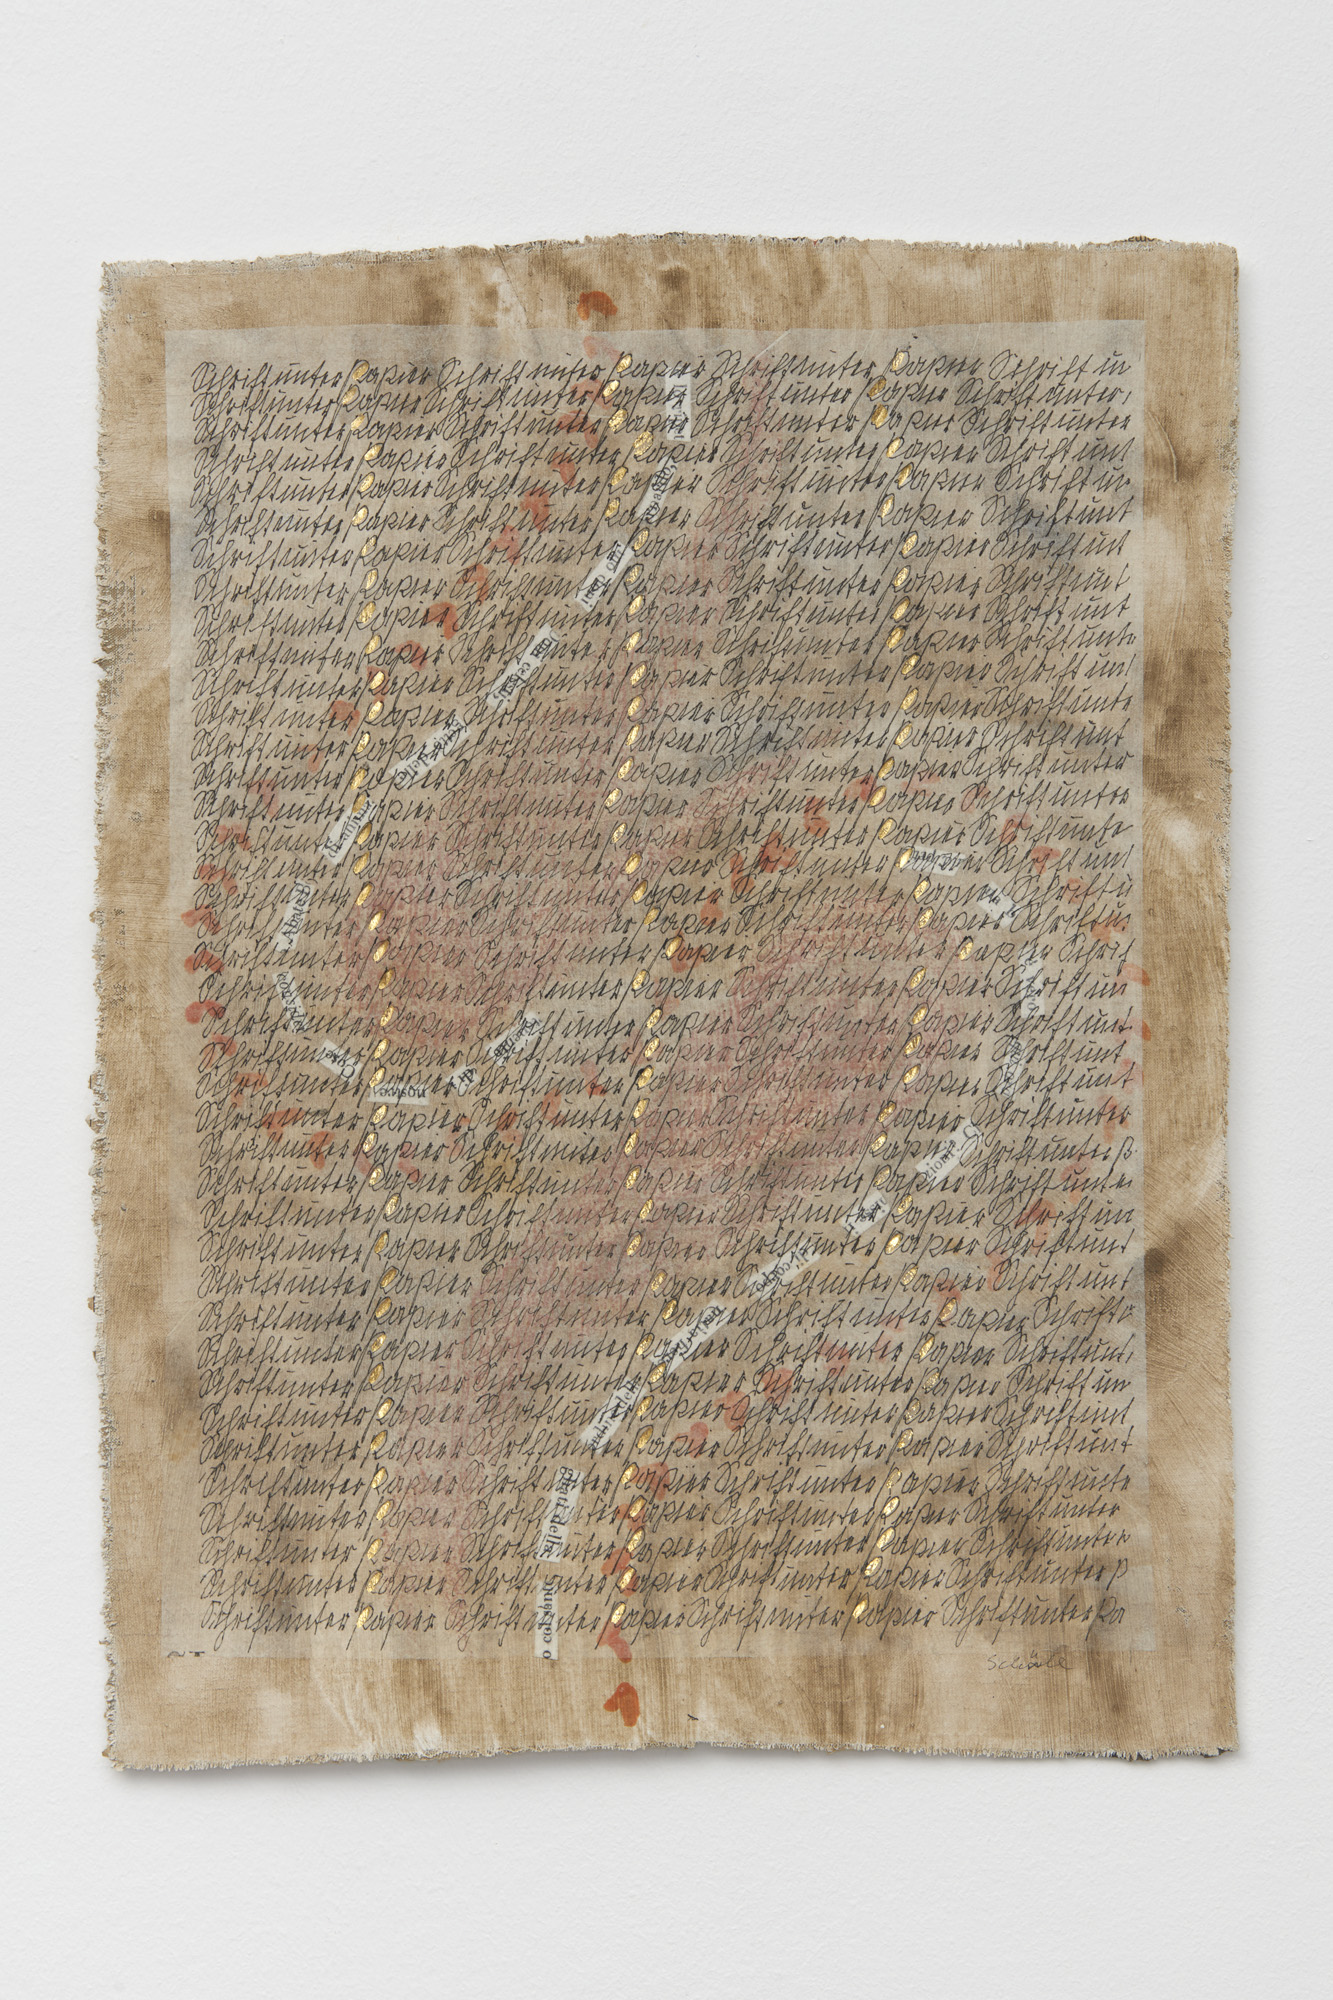 Schrift unter Papier Schrift unter Papier Schrift unter Papier Schrift un
Schrift unter Papier Schrift unter Papier Schrift unter Papier Schrift unter
Schrift unter Papier Schrift unter Papier Schrift unter Papier Schrift unter
Schrift unter Papier Schrift unter Papier Schrift unter Papier Schrift unt
Schrift unter Papier Schrift unter Papier Schrift unter Papier Schrift un
Schrift unter Papier Schrift unter Papier Schrift unter Papier Schrift unt
Schrift unter Papier Schrift unter Papier Schrift unter Papier Schrift unt
Schrift unter Papier Schrift unter Papier Schrift unter Papier Schrift unt
Schrift unter Papier Schrift unter Papier Schrift unter Papier Schrift unt
Schrift unter Papier Schrift unter Papier Schrift unter Papier Schrift unte
Schrift unter Papier Schrift unter Papier Schrift unter Papier Schrift unt
Schrift unter Papier Schrift unter Papier Schrift unter Papier Schrift unte
Schrift unter Papier Schrift unter Papier Schrift unter Papier Schrift unt
Schrift unter Papier Schrift unter Papier Schrift unter Papier Schrift unter
Schrift unter Papier Schrift unter Papier Schrift unter Papier Schrift unter
Schrift unter Papier Schrift unter Papier Schrift unter Papier Schrift unte
Schrift unter Papier Schrift unter Papier Schrift unter Papier Schrift unt
Schrift unter Papier Schrift unter Papier Schrift unter Papier Schrift u
Schrift unter Papier Schrift unter Papier Schrift unter Papier Schrift un
Schrift unter Papier Schrift unter Papier Schrift unter Papier Schrif
Schrift unter Papier Schrift unter Papier Schrift unter Papier Schrift un
Schrift unter Papier Schrift unter Papier Schrift unter Papier Schrift unt
Schrift unter Papier Schrift unter Papier Schrift unter Papier Schrift unt
Schrift unter Papier Schrift unter Papier Schrift unter Papier Schrift unt
Schrift unter Papier Schrift unter Papier Schrift unter Papier Schrift unter
Schrift unter Papier Schrift unter Papier Schrift unter Papier Schrift unter P
Schrift unter Papier Schrift unter Papier Schrift unter Papier Schrift unte
Schrift unter Papier Schrift unter Papier Schrift unter Papier Schrift un
Schrift unter Papier Schrift unter Papier Schrift unter Papier Schrift unt
Schrift unter Papier Schrift unter Papier Schrift unter Papier Schrift unt
Schrift unter Papier Schrift unter Papier Schrift unter Papier Schrift u
Schrift unter Papier Schrift unter Papier Schrift unter Papier Schrift unt
Schrift unter Papier Schrift unter Papier Schrift unter Papier Schrift un
Schrift unter Papier Schrift unter Papier Schrift unter Papier Schrift unt
Schrift unter Papier Schrift unter Papier Schrift unter Papier Schrift unt
Schrift unter Papier Schrift unter Papier Schrift unter Papier Schrift unte
Schrift unter Papier Schrift unter Papier Schrift unter Papier Schrift unter
Schrift unter Papier Schrift unter Papier Schrift unter Papier Schrift unter
Schrift unter Papier Schrift unter Papier Schrift unter Papier Schrift unter P
Schrift unter Papier Schrift unter Papier Schrift unter Papier Schrift unter Pa